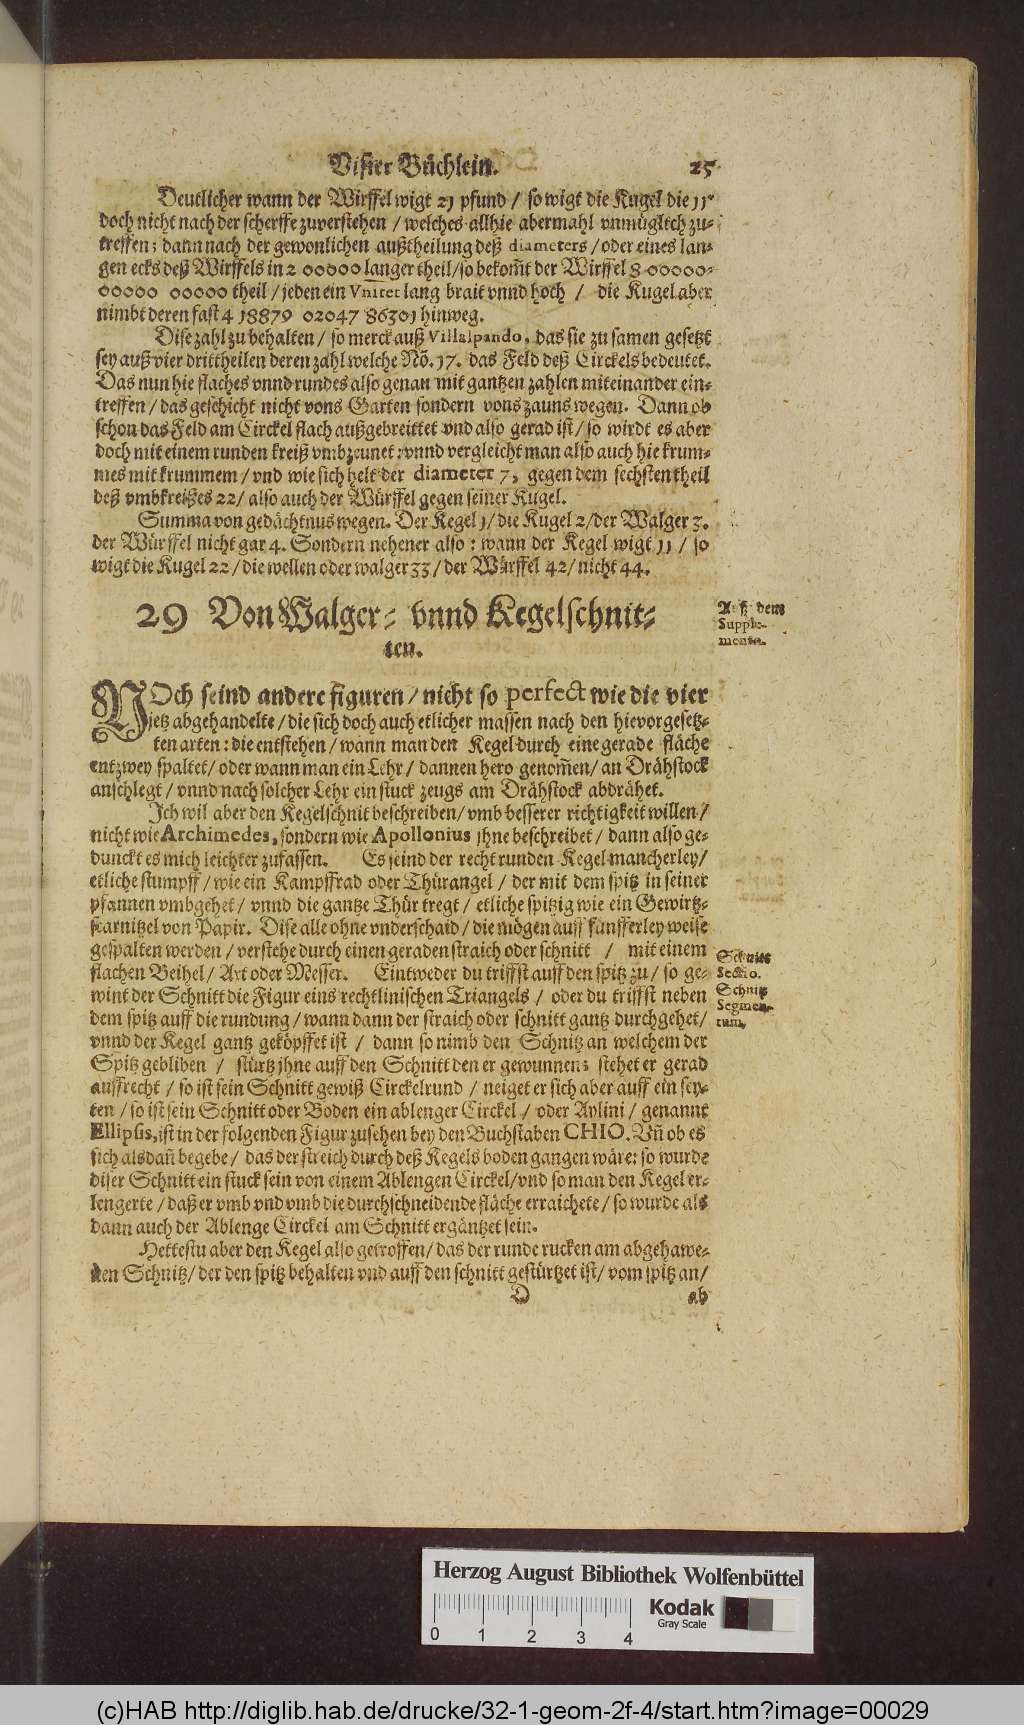 Visier Büchlein. 25
Deutlicher wann der Würffel wigt 21 pfund / so wigt die Kugel die 11.
doch nicht nach der scherffe zuverstehen / welches allhie abermahl vnmüglich zu-
treffen; dann nach der gewonlichen außtheilung deß diameters / oder eines lan-
gen ecks deß Würffels in 2 00000 langer theil / so bekom̃t der Würffel 8 00000-
00000 00000 theil / jeden ein Vnitet lang brait vnnd hoch / die Kugel aber
nimbt deren fast 4 18879 02047 86301 hinweg.
Dise zahl zu behalten / so merck auß Villalpando, das sie zu samen gesetzt
sey auß vier drittheilen deren zahl welche Nõ. 17. das Feld deß Circkels bedeutet.
Das nun hie flaches vnnd rundes also genau mit gantzen zahlen miteinander ein-
treffen / das geschicht nicht vons Garten sondern vons zauns wegen. Dann ob
schon das Feld am Circkel flach außgebreittet vnd also gerad ist / so wirdt es aber
doch mit einem runden kreiß vmbzeunet: vnnd vergleicht man also auch hie krum-
mes mit krummem / vnd wie sich helt der diameter 7, gegen dem sechsten theil
deß vmbkreißes 22 / also auch der Würffel gegen seiner Kugel.
Summa von gedächtnus wegen. Der Kegel 1 / die Kugel 2 / der Walger 3.
der Würffel nicht gar 4. Sondern nehener also: wann der Kegel wigt 11 / so
wigt die Kugel 22 / die wellen oder walger 33 / der Würffel 42 / nicht 44.
29 Von Walger- vnnd Kegelschnit-
ten.
Auß dem
Supple-
mento.
NOch seind andere figuren / nicht so perfect wie die vier
jetz abgehandelte / die sich doch auch etlicher massen nach den hievorgesetz-
ten arten: die entstehen / wann man den Kegel durch eine gerade fläche
entzwey spaltet / oder wann man ein Lehr / dannen hero genom̃en / an Drähstock
anschlegt / vnnd nach solcher Lehr ein stuck zeugs am Drähstock abdrähet.
Ich wil aber den Kegelschnit beschreiben / vmb besserer richtigkeit willen /
nicht wie Archimedes, sondern wie Apollonius jhne beschreibet / dann also ge-
dunckt es mich leichter zufassen. Es seind der recht runden Kegel mancherley /
etliche stumpff / wie ein Kampffrad oder Thürangel / der mit dem spitz in seiner
pfannen vmbgehet / vnnd die gantze Thür tregt / etliche spitzig wie ein Gewirtz-
scarnitzel von Papir. Dise alle ohne vnderschaid / die mögen auff fünfferley weise
gespalten werden / verstehe durch einen geraden straich oder schnitt / mit einem
flachen Beihel / Axt oder Messer. Eintweder du triffst auff den spitz zu / so ge-
wint der Schnitt die Figur eins rechtlinischen Triangels / oder du triffst neben
dem spitz auff die rundung / wann dann der straich oder schnitt gantz durchgehet /
vnnd der Kegel gantz geköpffet ist / dann so nimb den Schnitz an welchem der
Spitz gebliben / stürtz jhne auff den Schnitt den er gewunnen: stehet er gerad
auffrecht / so ist sein Schnitt gewiß Circkelrund / neiget er sich aber auff ein sey-
ten / so ist sein Schnitt oder Boden ein ablenger Circkel / oder Aylini / genannt
Ellipsis, ist in der folgenden Figur zusehen bey den Buchstaben CHIO. Vñ ob es
sich alsdañ begebe / das der streich durch deß Kegels boden gangen wäre: so wurde
diser Schnitt ein stuck sein von einem Ablengen Circkel / vnd so man den Kegel er-
lengerte / daß er vmb vnd vmb die durchschneidende fläche erraichete / so wurde als
dann auch der Ablenge Circkel am Schnitt ergäntzet sein.
Schnitt
Sectio.
Schnitz
Segmen-
tum.
Hettestu aber den Kegel also getroffen / das der runde rucken am abgehawe-
nen Schnitz / der den spitz behalten vnd auff den schnitt gestürtzet ist / vom spitz an /
D ab
Herzog August Bibliothek Wolfenbüttel
0 1 2 3 4
Kodak
Gray Scale
(c)HAB http://diglib.hab.de/drucke/32-1-geom-2f-4/start.htm?image=00029